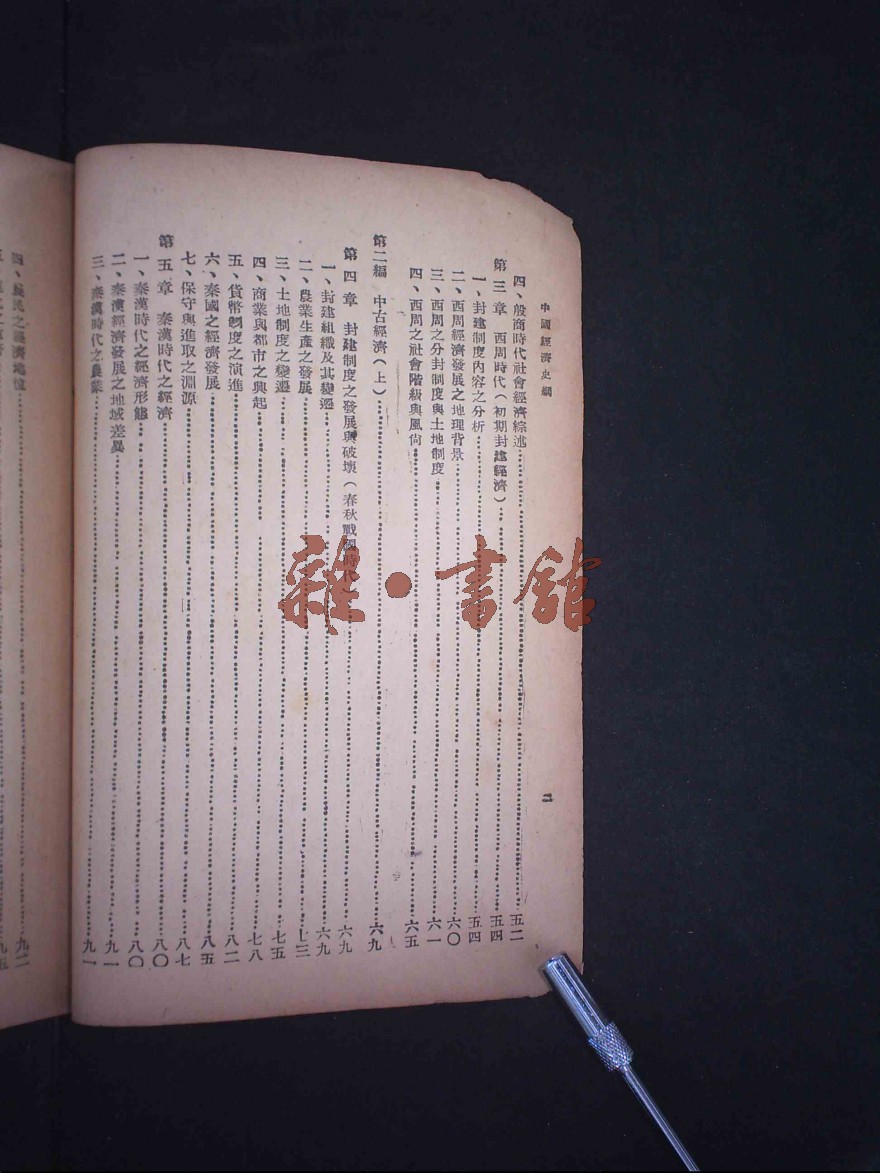 中國經濟史綱
四、殷商時代社會經濟綜述……五二
第三章 西周時代(初期封建經濟)……五四
一、封建制度內容之分析……五四
二、西周經濟發展之地理背景……六〇
三、西周之分封制度與土地制度……六一
四、西周之社會階級與風尙……六五
第二編 中古經濟(上)……六九
第四章 封建制度之發展與破壞(春秋戰國時代)……六九
一、封建組織及其變遷……六九
二、農業生產之發展……七三
三、土地制度之變遷……七五
四、商業與都市之興起……七八
五、貨幣制度之演進……八二
六、秦國之經濟發展……八五
七、保守與進取之淵源……八七
第五章 秦漢時代之經濟……八〇
一、秦漢時代之經濟形態……八〇
二、秦漢經濟發展之地域差異……九一
三、秦漢時代之農業……九一
四、農民之經濟地位……九二
雜·書館